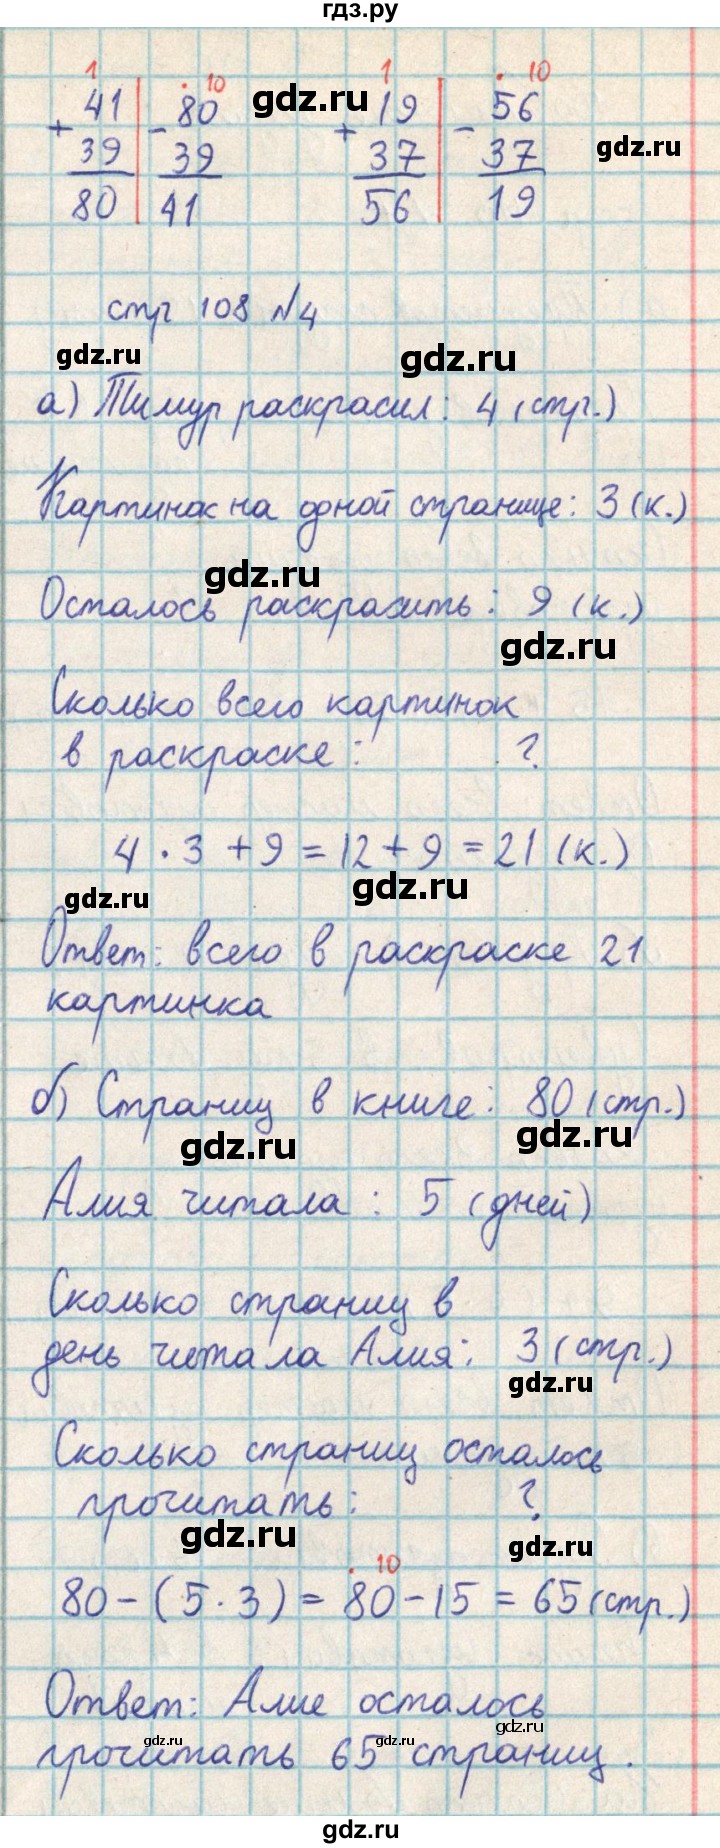 гдз.ру
1 · 10 1 · 10
+ 41 - 80 + 19 - 56
39 39 37 37
80 41 56 19
gdz.ru
gdz.ru
стр 108 №4
gdz.ru
gdz.ru
а) Тимур раскрасил: 4 (стр.)
Картинок на одной странице: 3 (к.)
gdz.ru
Осталось раскрасить: 9 (к.)
gdz.ru
Сколько всего картинок
в раскраске: ?
4 · 3 + 9 = 12 + 9 = 21 (к.)
gdz.ru
gdz.ru
Ответ: всего в раскраске 21
картинка
б) Страниц в книге: 80 (стр.)
gdz.ru
gdz.ru
Алия читала: 5 (дней)
Сколько страниц в
день читала Алия: 3 (стр.)
gdz.ru
Сколько страниц осталось
прочитать: ?
gdz.ru
gdz.ru
· 10
80 - (5 · 3) = 80 - 15 = 65 (стр.)
Ответ: Алие осталось
gdz.ru
gdz.ru
gdz.ru
прочитать 65 страниц.
gdz.ru